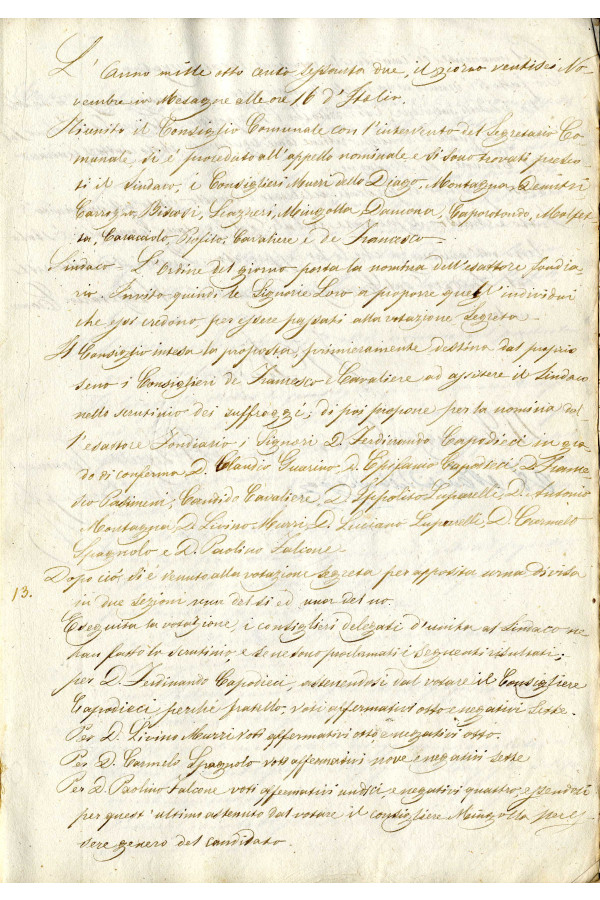 L'Anno mille otto cento sessanta due, il giorno ventisei No-
vembre in Mesagne alle ore 16 d'Italia.
Riunito il Consiglio Comunale con l'intervento del Segretario Co-
munale, si è proceduto all'appello nominale e si sono trovati presen-
ti il Sindaco, i Consiglieri Murri dello Diago, Montagna,
Carrozzo, Scazzeri, Mingolla, Damona, Caporotondo, Molfet-
ta, Caracciolo, Profilo, Cavaliere e de Francesco.
Sindaco - L'Ordine del giorno porta la nomina dell'esattore fondia-
rio. Invito quindi le Signorie Loro a proporre quell'individui
che essi credono per essere passati alla votazione segreta.
Il Consiglio intesa la proposta, primieramente destina dal proprio
seno i Consiglieri de Francesco e Cavaliere ad assistere il Sindaco
nello scrutinio dei suffraggi; di poi propone per la nomina del
l'esattore Fondiario i Signori D. Ferdinando Capodieci in gra-
do di conferma D. Claudio Guarino, D. Epifanio Capodieci, D. France
sco Candido Cavaliere, D. Ippolito Luparelli, D. Antonio
Montagna, D. Livino Murri, D. Luciano Luparelli, D. Carmelo
Spagnolo e D. Paolino Falcone.
Dopo ciò, si è venuto alla votazione segreta per apposita urna divisa
13.
in due sezioni una del sì ed una del no.
Eseguita la votazione, i consiglieri delegati d'unita al Sindaco ne
han fatto lo scrutinio e se ne sono proclamati i seguenti risultati;
per D. Ferdinando Capodieci, astenendosi dal votare il Consigliere
Capodieci perchè fratello, voti affermativi otto e negativi sette.
Per D. Livino Murri voti affermativi otto e negativi otto.
Per D. Carmelo Spagnolo voti affermativi nove e negativi sette
Per D. Paolino Falcone voti affermativi undici e negativi quattro, essendosi
per quest'ultimo astenuto dal votare il consigliere Mingolla per es
sere genero del candidato.